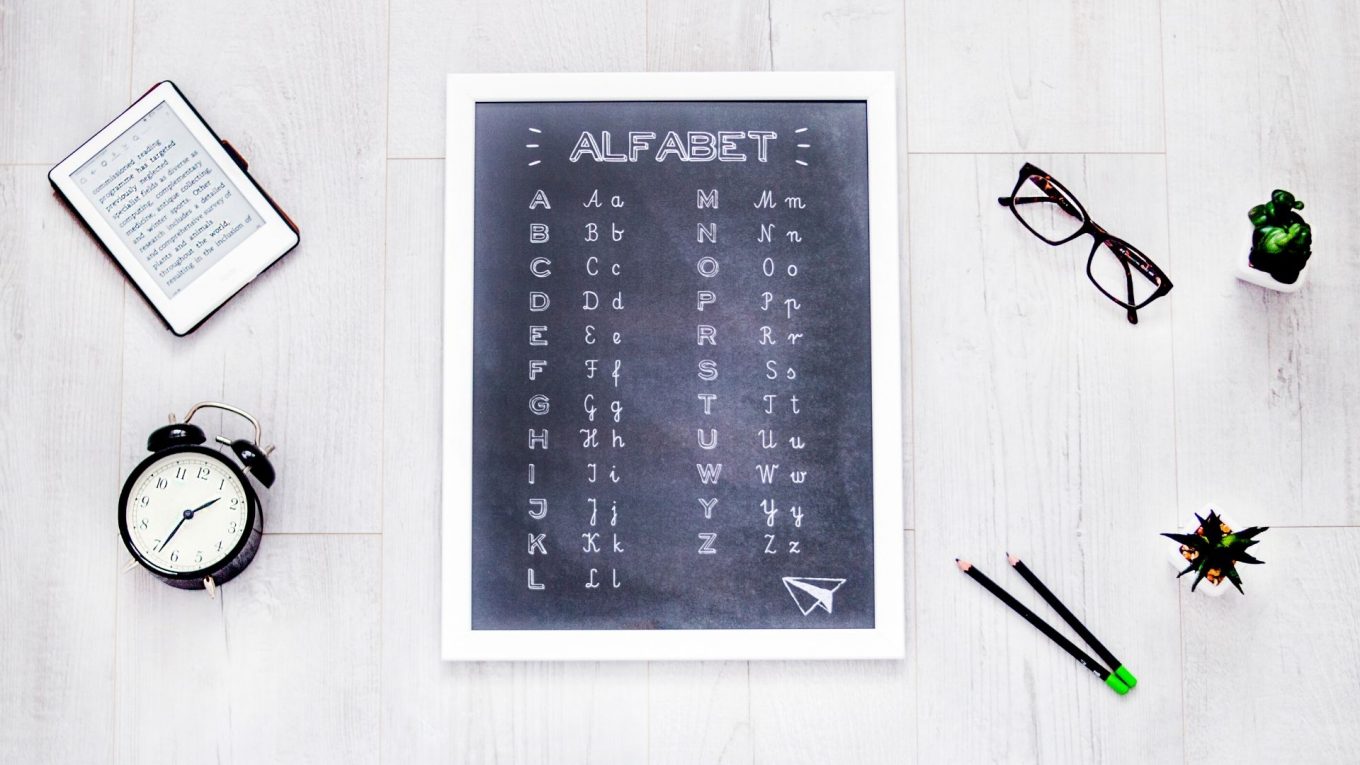 commissioned reading
programme has targeted
previously neglected
specialist fields as diverse as
computing, complementary
medicine, antique collecting,
and winter sports. Other
research includes a detailed
and comprehensive survey of
plants and animals
throughout the world,
resulting in the inclusion of
ALFABET
A A a
B B b
C C c
D D d
E E e
F F f
G G g
H H h
I I i
J J j
K K k
L L l
M M m
N N n
O O o
P P p
R R r
S S s
T T t
U U u
W W w
Y Y y
Z Z z
12
1
2
3
4
5
6
7
8
9
10
11